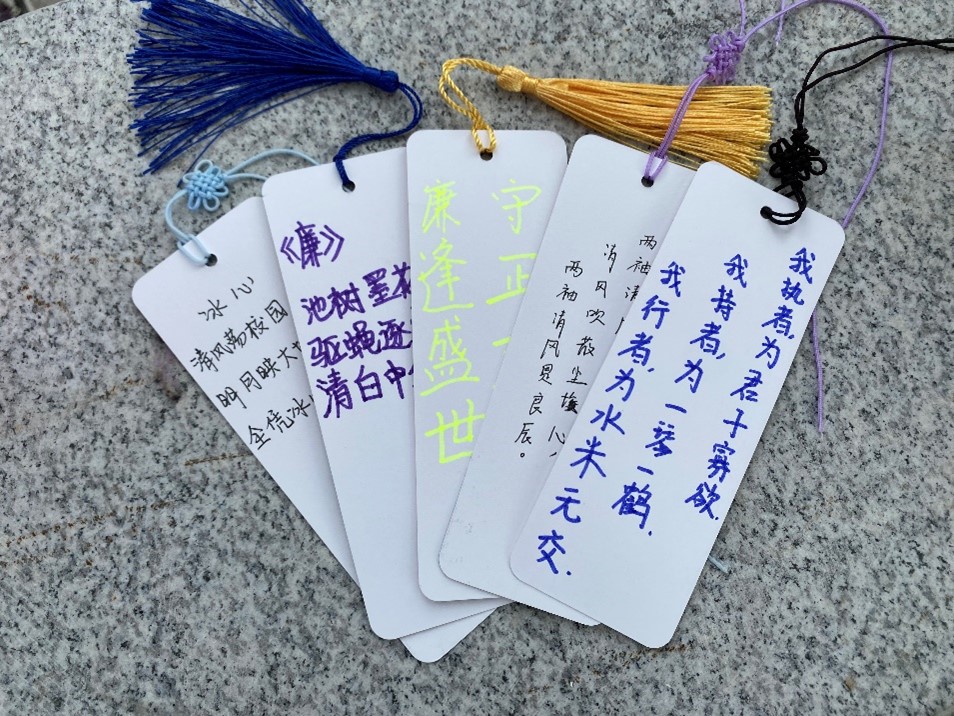 冰心
清风荡校园
明月映大
全凭冰
《廉》
池树墨花
驱蝇逐
清白中
守正
廉逢盛世
两袖清
清风吹散尘埃心,
两袖清风是良辰。
我执者,为君子寡欲.
我持者,为一琴一鹤.
我行者,为水米无交.